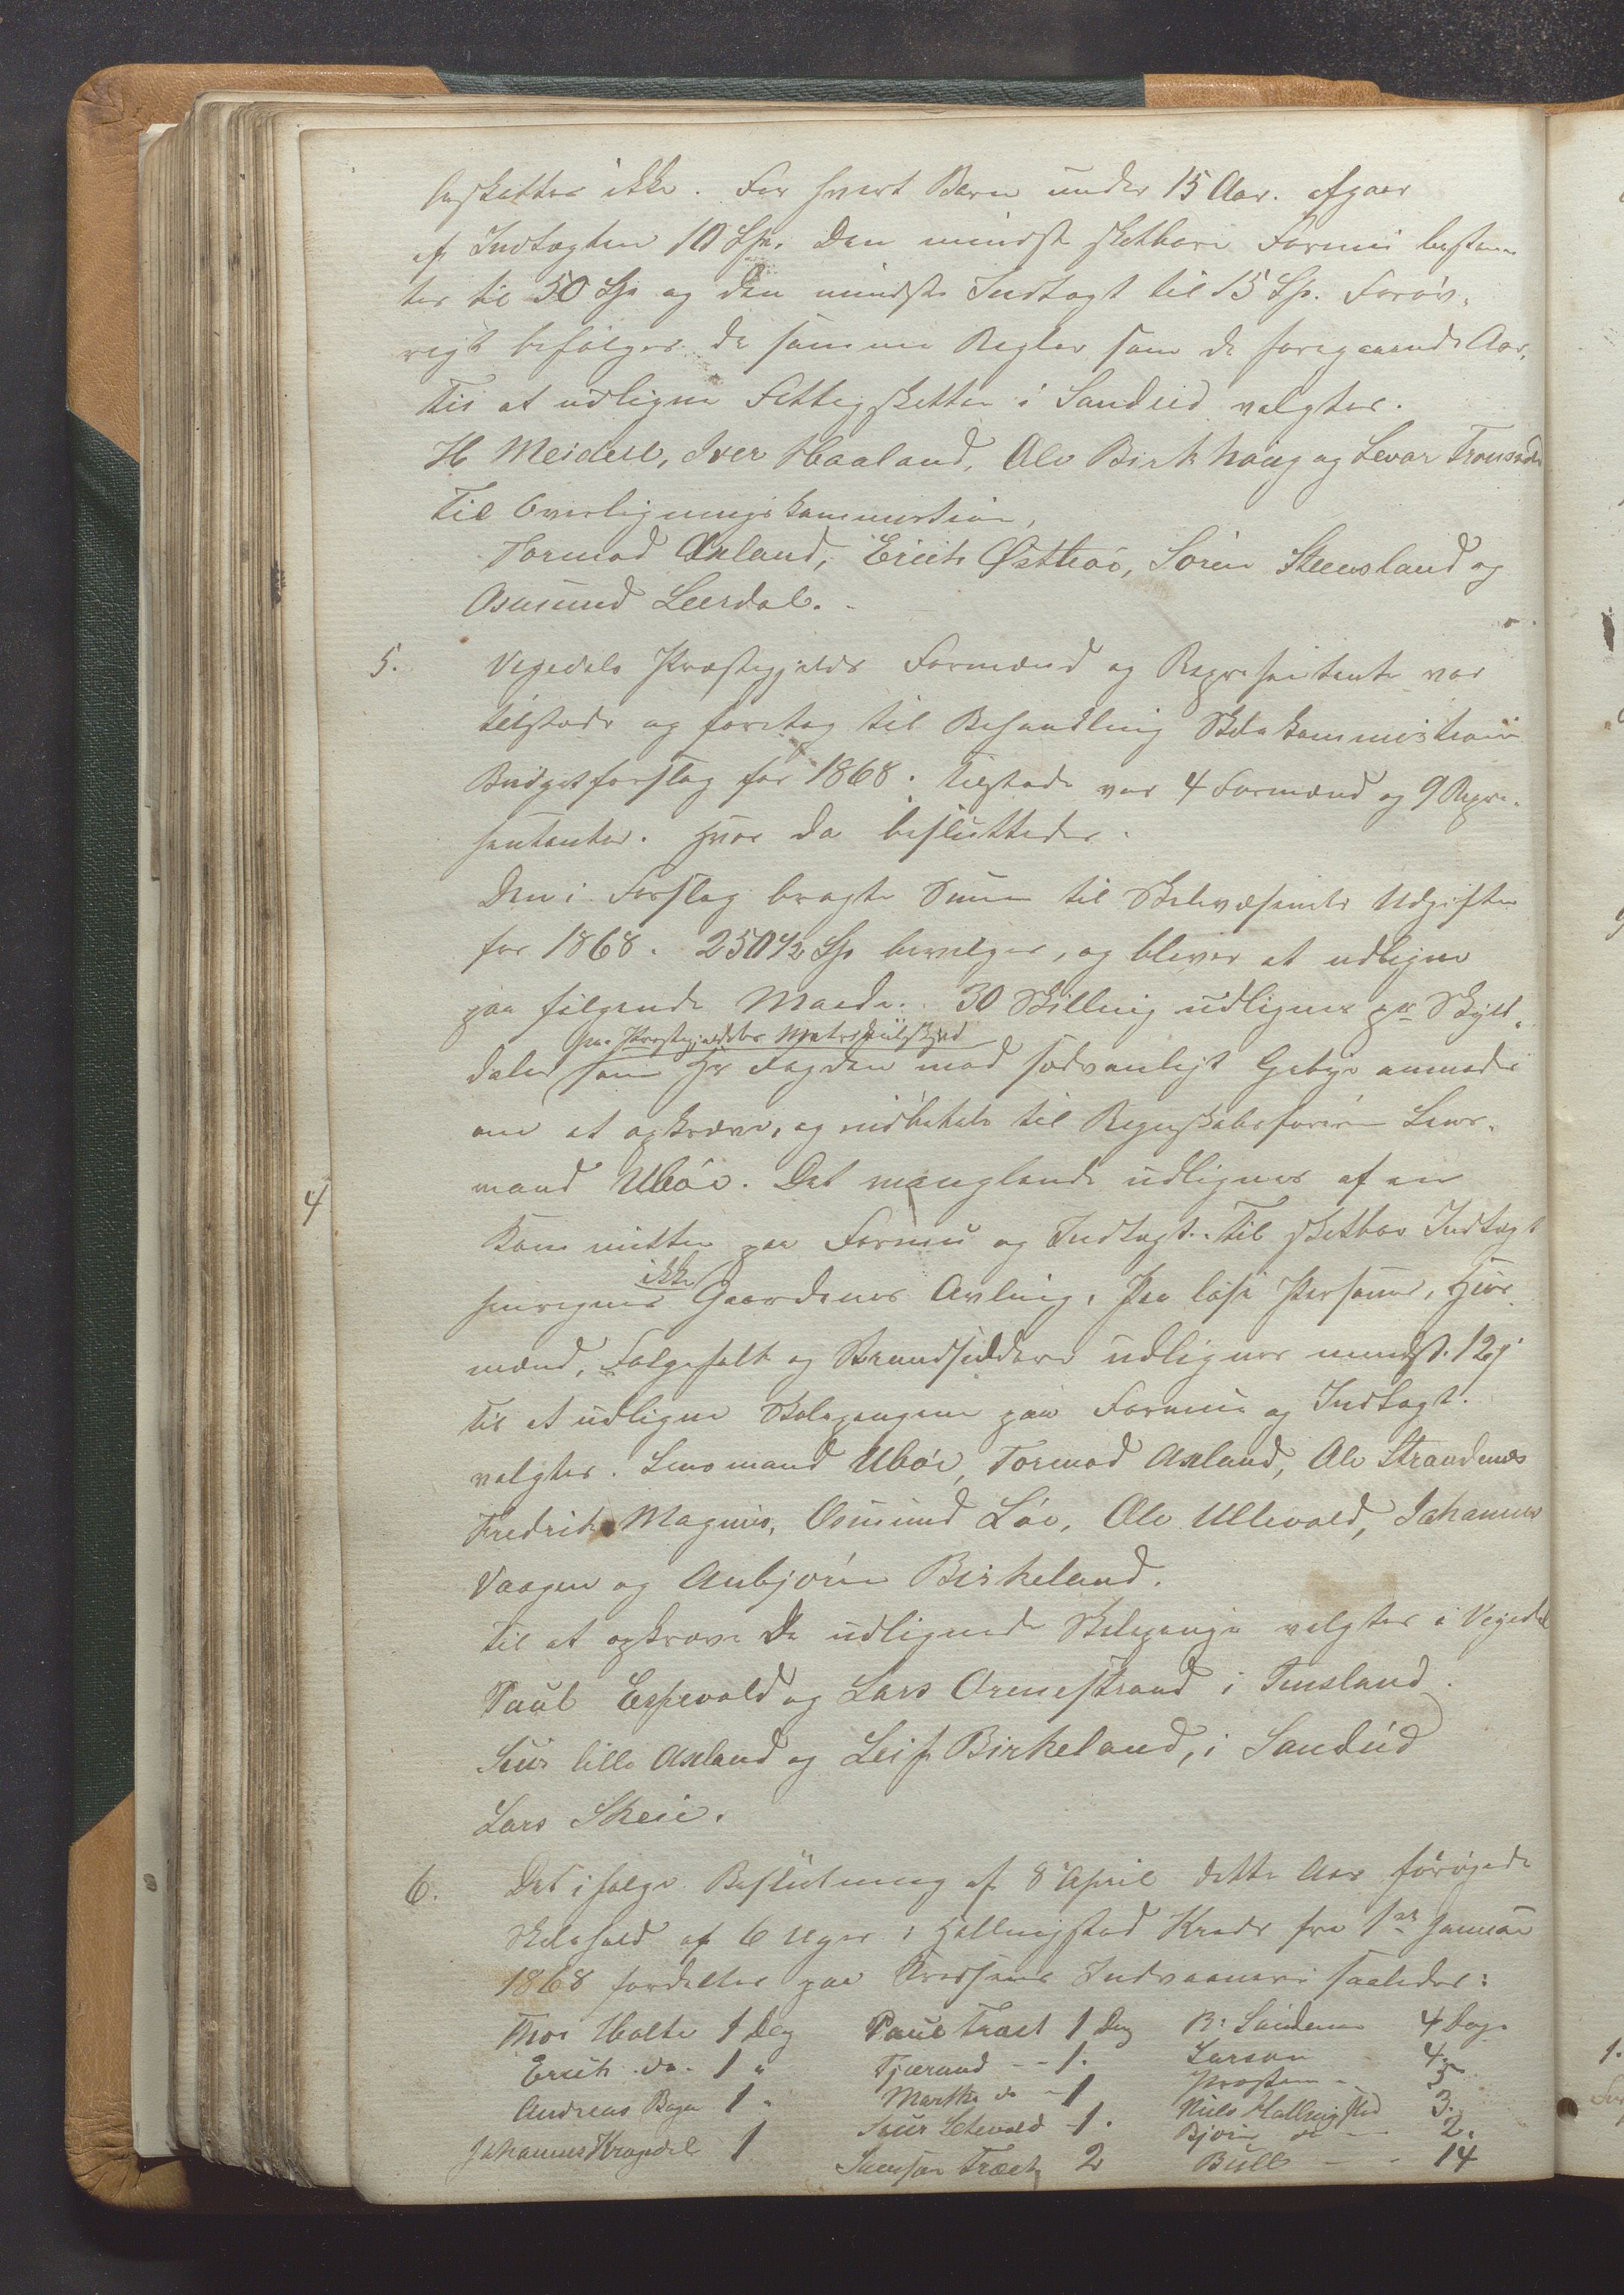 beskattes ikke. For hvert Barn under 15 Aar. afgaar
af Indtægten 10 Sp. Den mindste skatbare Formue bestem
tes til 50 Sp og den mindste Indtægt til 15 Sp. Forøv-
rigt befølges de samme Regler som de foregaaende Aar,
Til at udligne Fattigskatten i Sandeid valgtes.
H. Meidell, Iver Haaland, Ole Birkhaug og Levar
Til Overligningskommission,
Tormod Øxland, Erick Østbøe, Sören Steensland og
Osmund Leerdal.
5. Vigedals Præstegjelds Formænd og Representante var
tilstæde og foretog til Behandling Skolekommissionen
Budgetforslag for 1868. Tilstæde var 4 Formænd og 9 Repre-
sentanter. Hvor da besluttedes.
Den i Forslag bragte Sum til Skolevæsenets Udgifter
for 1868. 250½ Sp bevilges, og bliver at udligne
paa følgende Maade. 30 Skilling udlignes pr Skyld-
paa Præstegjeldets Matrikülskyld
daler som Hr Fogden mod sædvanligt Gebyr anmodes
om at opkræve, og indbetale til Regnskabsføreren Lens-
mand Ubøe. Det manglende udlignes af en
4
Kommitten paa Formue og Indtægt. Til skatbar Indtægt
ikke
henregnes Gaardenes Avling. Paa løse Personer, Huus-
mænd, Folgefolk og Strandsiddere udlignes mindst. 12 s
Til at udligne Skolepengene paa Formue og Indtægt.
valgtes. Lensmand Ubøe, Tormod Axland, Ole Strandenæs
Fredrik Magnus, Osmund Løe, Ole Ullevold, Johannes
Vaagen og Anbjørn Birkeland.
Til at opkræve de udlignede Skolepenge valgtes i Vigedal
Paul Espevold og Lars Ormestrand i Imsland
Siur lille Axland og Leif Birkeland, i Sandeid
Lars Skeie.
6. Det ifølge Beslutning af 8 April dette Aar forøgede
Skolehold af 6 Uger i Hallingstad Kreds fra 1ste Januar
1868 fordeltes paa Kredsens Indvaanere saaledes:
Thor Holte 1 Dag Paul Træet 1 Dag B. 4 Dage
Erich do- 1 " Tjærand - - 1. Larson 4.
Andreas 1 " Marthe do - 1 Præsten - 5
Johannes 1 Siur - 1. Niels Hallingstad 3.
Samson Træet 2 Bjørn do - 2.
Bull - - 14